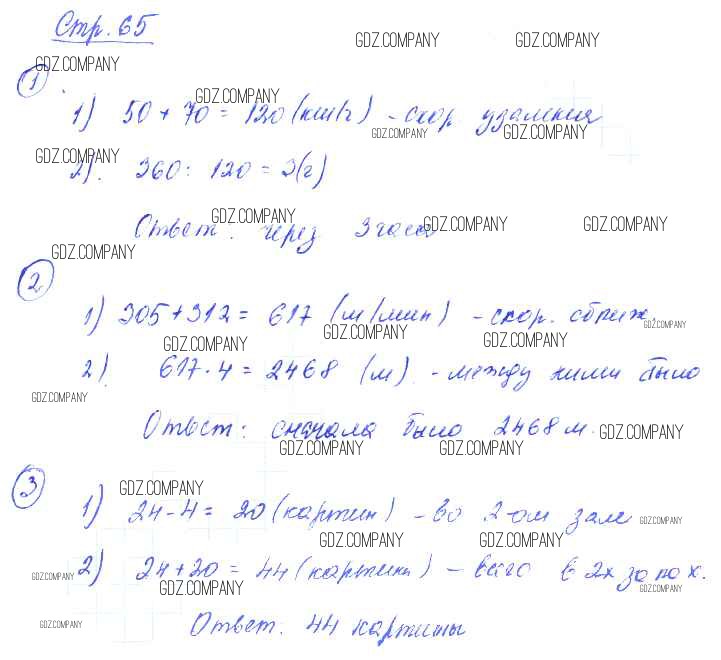 Стр. 65
GDZ.COMPANY GDZ.COMPANY
GDZ.COMPANY
1
GDZ.COMPANY
1) 50 + 70 = 120 (км/ч) - скор удаления
GDZ.COMPANY GDZ.COMPANY
GDZ.COMPANY
2). 360 : 120 = 3(г)
GDZ.COMPANY GDZ.COMPANY GDZ.COMPANY
Ответ: через 3 часа
GDZ.COMPANY
2
1) 305 + 312 = 617 (м/мин) - скор. сближ
GDZ.COMPANY GDZ.COMPANY GDZ.COMPANY GDZ.COMPANY
2) 617 · 4 = 2468 (м) - между ними было
GDZ.COMPANY
Ответ: сначала было 2468 м. GDZ.COMPANY
GDZ.COMPANY GDZ.COMPANY
3
GDZ.COMPANY
1) 24 - 4 = 20 (картин) - во 2-ом зале GDZ.COMPANY
GDZ.COMPANY GDZ.COMPANY
2) 24 + 20 = 44 (картины) - всего в 2х залах.
GDZ.COMPANY GDZ.COMPANY GDZ.COMPANY
Ответ: 44 картины
GDZ.COMPANY